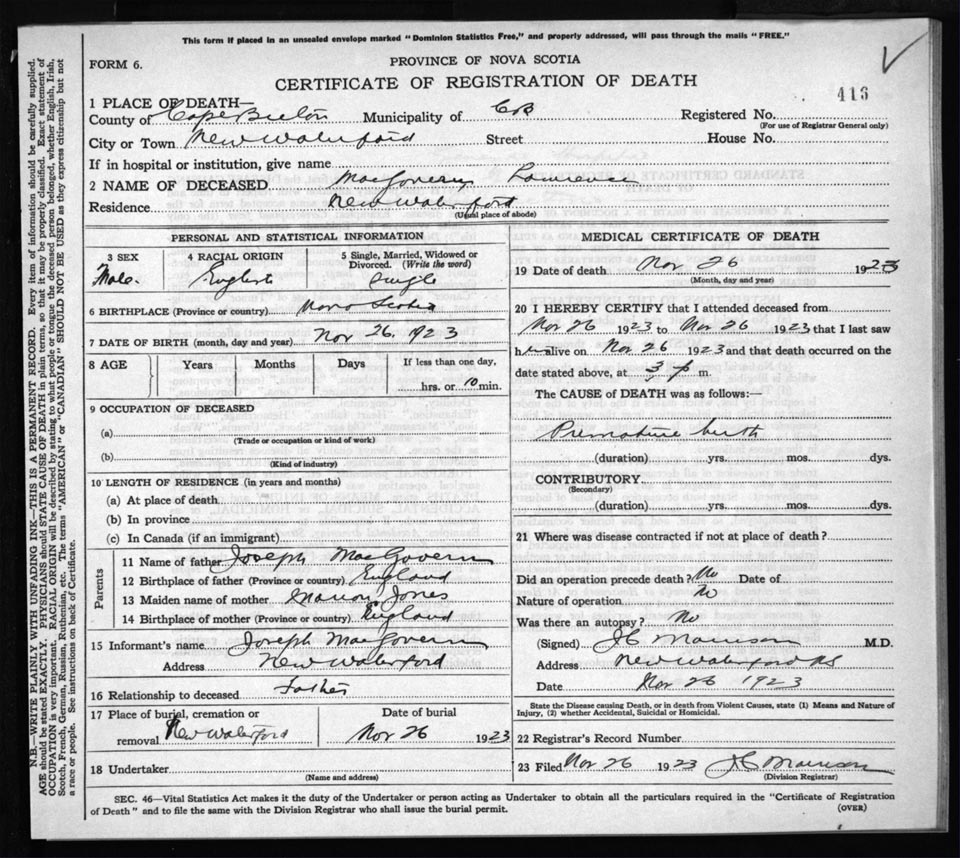 This form if placed in an unsealed envelope marked "Dominion Statistics Free," and properly addressed, will pass through the mails "FREE."
FORM 6.
PROVINCE OF NOVA SCOTIA
CERTIFICATE OF REGISTRATION OF DEATH
416
1 PLACE OF DEATH—
County of Cape Breton Municipality of CB Registered No.
(For use of Registrar General only)
City or Town New Waterford Street House No.
If in hospital or institution, give name
2 NAME OF DECEASED MacGovern Lawrence
Residence New Waterford
(Usual place of abode)
PERSONAL AND STATISTICAL INFORMATION
3 SEX 4 RACIAL ORIGIN 5 Single, Married, Widowed or Divorced. (Write the word)
Male. English Single
6 BIRTHPLACE (Province or country) Nova Scotia
7 DATE OF BIRTH (month, day and year) Nov 26. 1923
8 AGE Years Months Days If less than one day,
hrs. or 10 min.
9 OCCUPATION OF DECEASED
(a)
(Trade or occupation or kind of work)
(b)
(Kind of industry)
10 LENGTH OF RESIDENCE (in years and months)
(a) At place of death
(b) In province
(c) In Canada (if an immigrant)
Parents
11 Name of father Joseph MacGovern
12 Birthplace of father (Province or country) England
13 Maiden name of mother Marion Jones
14 Birthplace of mother (Province or country) England
15 Informant's name Joseph MacGovern
Address New Waterford
16 Relationship to deceased father
17 Place of burial, cremation or removal New Waterford
Date of burial
Nov 26 1923
18 Undertaker
(Name and address)
MEDICAL CERTIFICATE OF DEATH
19 Date of death Nov 26 1923
(Month, day and year)
20 I HEREBY CERTIFY that I attended deceased from
Nov 26 1923 to Nov 26 1923 that I last saw
him alive on Nov 26 1923 and that death occurred on the
date stated above, at 3 p m.
The CAUSE of DEATH was as follows:—
Premature birth
(duration) yrs. mos. dys.
CONTRIBUTORY
(Secondary)
(duration) yrs. mos. dys.
21 Where was disease contracted if not at place of death?
Did an operation precede death? No Date of
Nature of operation No
Was there an autopsy? No
(Signed) JC Morrison M.D.
Address New Waterford NS
Date Nov 26 1923
State the Disease causing Death, or in death from Violent Causes, state (1) Means and Nature of
Injury, (2) whether Accidental, Suicidal or Homicidal.
22 Registrar's Record Number
23 Filed Nov 26 1923 JC Morrison
(Division Registrar)
SEC. 46—Vital Statistics Act makes it the duty of the Undertaker or person acting as Undertaker to obtain all the particulars required in the "Certificate of Registration
of Death" and to file the same with the Division Registrar who shall issue the burial permit. (OVER)
N.B.—WRITE PLAINLY WITH UNFADING INK—THIS IS A PERMANENT RECORD. Every item of information should be carefully supplied.
AGE should be stated EXACTLY. PHYSICIANS should STATE CAUSE OF DEATH in plain terms, so that it may be properly classified. Exact statement of
OCCUPATION is very important. RACIAL ORIGIN will be described by stating to what people or tongue the deceased person belonged, whether English, Irish,
Scotch, French, German, Russian, Ruthenian, etc. The terms "AMERICAN" or "CANADIAN" SHOULD NOT BE USED as they express citizenship but not
a race or people. See instructions on back of Certificate.